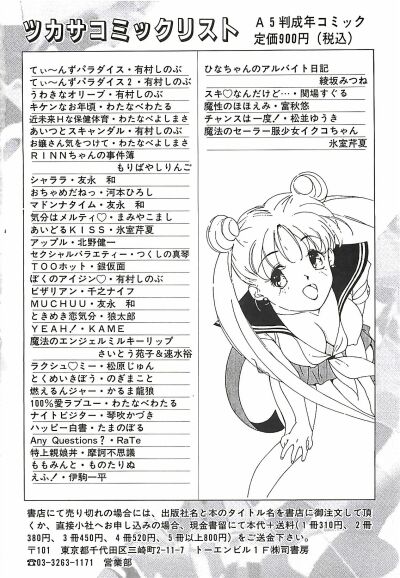 ツカサコミックリスト
A5判成年コミック
定価900円（税込）
てぃ〜んずパラダイス・有村しのぶ
てぃ〜んずパラダイス2・有村しのぶ
うわきなオリーブ・有村しのぶ
キケンなお年頃・わたなべわたる
近未来H な保健体育・わたなべよしまさ
あいつとスキャンダル・有村しのぶ
お嬢さん気をつけて・わたなべよしまさ
RINNちゃんの事件簿
もりばやしりんご
シャララ・友永　和
おちゃめだねっ・河本ひろし
マドンナタイム・友永　和
気分はメルティ♡・まみやこまし
あいどるKISS・氷室芹夏
アップル・北野健一
セクシャルバラエティー・つくしの真琴
TOOホット・銀仮面
ぼくのアイジン♡・有村しのぶ
ビザリアン・千之ナイフ
MUCHUU・友永　和
ときめき恋気分・狼太郎
YEAH！・KAME
魔法のエンジェルミルキーリップ
さいとう苑子＆速水裕
ラクシュ♡ミー・松原じゅん
とくめいきぼう・のぎまこと
燃えるんジャー・かるま龍狼
100％愛ラブユー・わたなべわたる
ナイトビジター・琴吹かづき
ハッピー白書・たまのぼる
Any Questions？・RaTe
特上親娘丼・摩訶不思議
ももみんと・ものたりぬ
えふ！・伊駒一平
ひなちゃんのアルバイト日記
綾坂みつね
スキ♡なんだけど…・関場すぐる
魔性のほほえみ・富秋悠
チャンスは一度！・松並ゆうき
魔法のセーラー服少女イクコちゃん
氷室芹夏
書店にて売り切れの場合には、出版社名と本のタイトル名を書店に御注文して頂
くか、直接小社へお申し込みの場合、現金書留にて本代＋送料（1冊310円、2冊
380円、3冊450円、4冊520円、5冊以上800円）をご送金下さい。
〒101　東京都千代田区三崎町2-11-7　トーエンビル1F㈱司書房
☎03-3263-1171　営業部